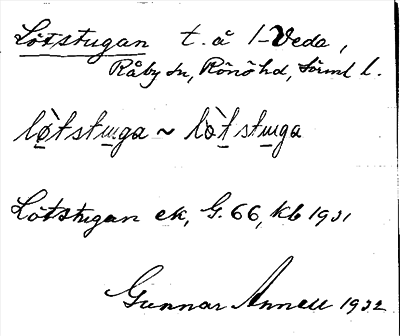 Lötstugan t. å 1-Veda,
Råby sn, Rönö hd, Sörml l.
lö̀tstuga ~ lòtstuga
Lötstugan ek, G.66, kb 1931
Gunnar Annell 1932